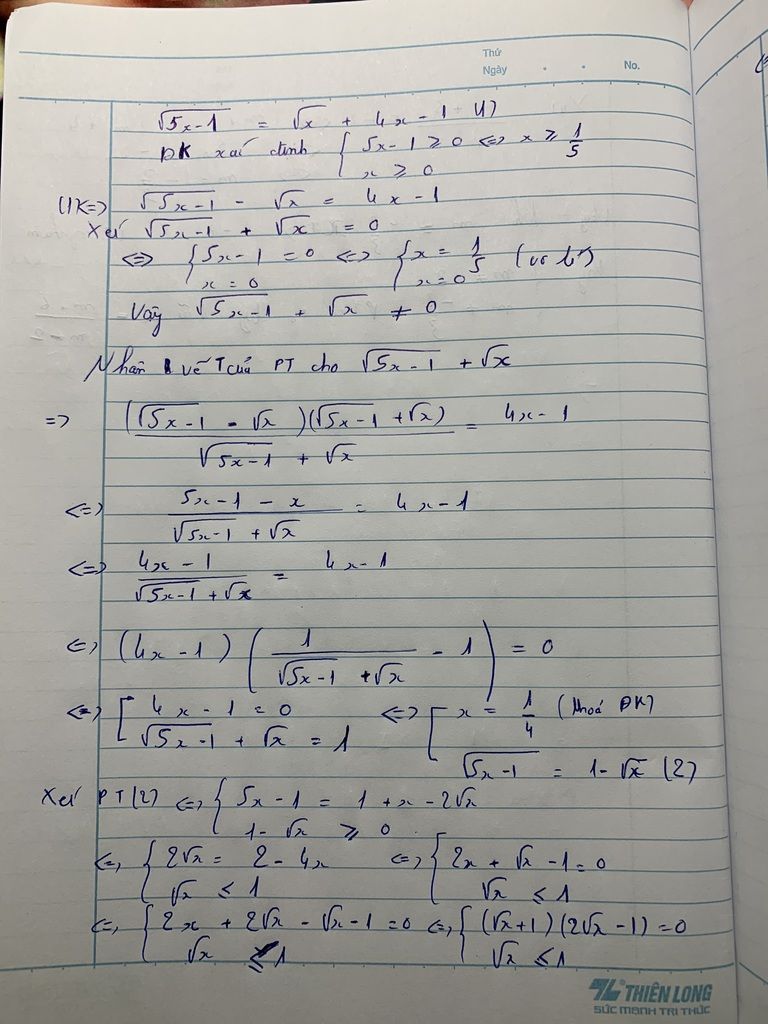 Thứ
Ngày . . No.
√(5x-1) = √x + 4x - 1 (1)
ĐK xác định { 5x - 1 ≥ 0 <=> x ≥ 1/5
x ≥ 0
(1) <=> √(5x-1) - √x = 4x - 1
Xét √(5x-1) + √x = 0
<=> { 5x - 1 = 0 <=> { x = 1/5 (vô lí)
x = 0 x = 0
Vậy √(5x-1) + √x ≠ 0
Nhân vế T của PT cho √(5x-1) + √x
=> (√(5x-1) - √x)(√(5x-1) + √x) / (√(5x-1) + √x) = 4x - 1
<=> (5x - 1 - x) / (√(5x-1) + √x) = 4x - 1
<=> (4x - 1) / (√(5x-1) + √x) = 4x - 1
<=> (4x - 1) ( 1 / (√(5x-1) + √x) - 1 ) = 0
<=> [ 4x - 1 = 0 <=> [ x = 1/4 (thoả ĐK)
√(5x-1) + √x = 1 √(5x-1) = 1 - √x (2)
Xét PT (2) <=> { 5x - 1 = 1 + x - 2√x
1 - √x ≥ 0
<=> { 2√x = 2 - 4x <=> { 2x + √x - 1 = 0
√x ≤ 1 √x ≤ 1
<=> { 2x + 2√x - √x - 1 = 0 <=> { (√x + 1)(2√x - 1) = 0
√x ≤ 1 √x ≤ 1
THIÊN LONG
SỨC MẠNH TRI THỨC